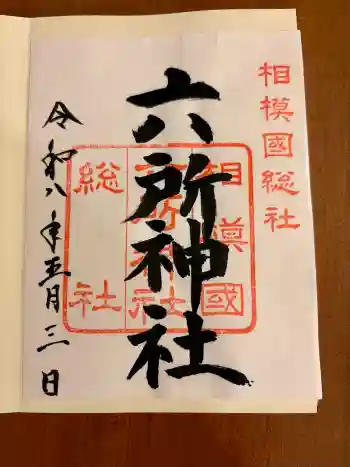 相模國総社
六所神社
相模國
六所神社
総社
令和八年五月三日